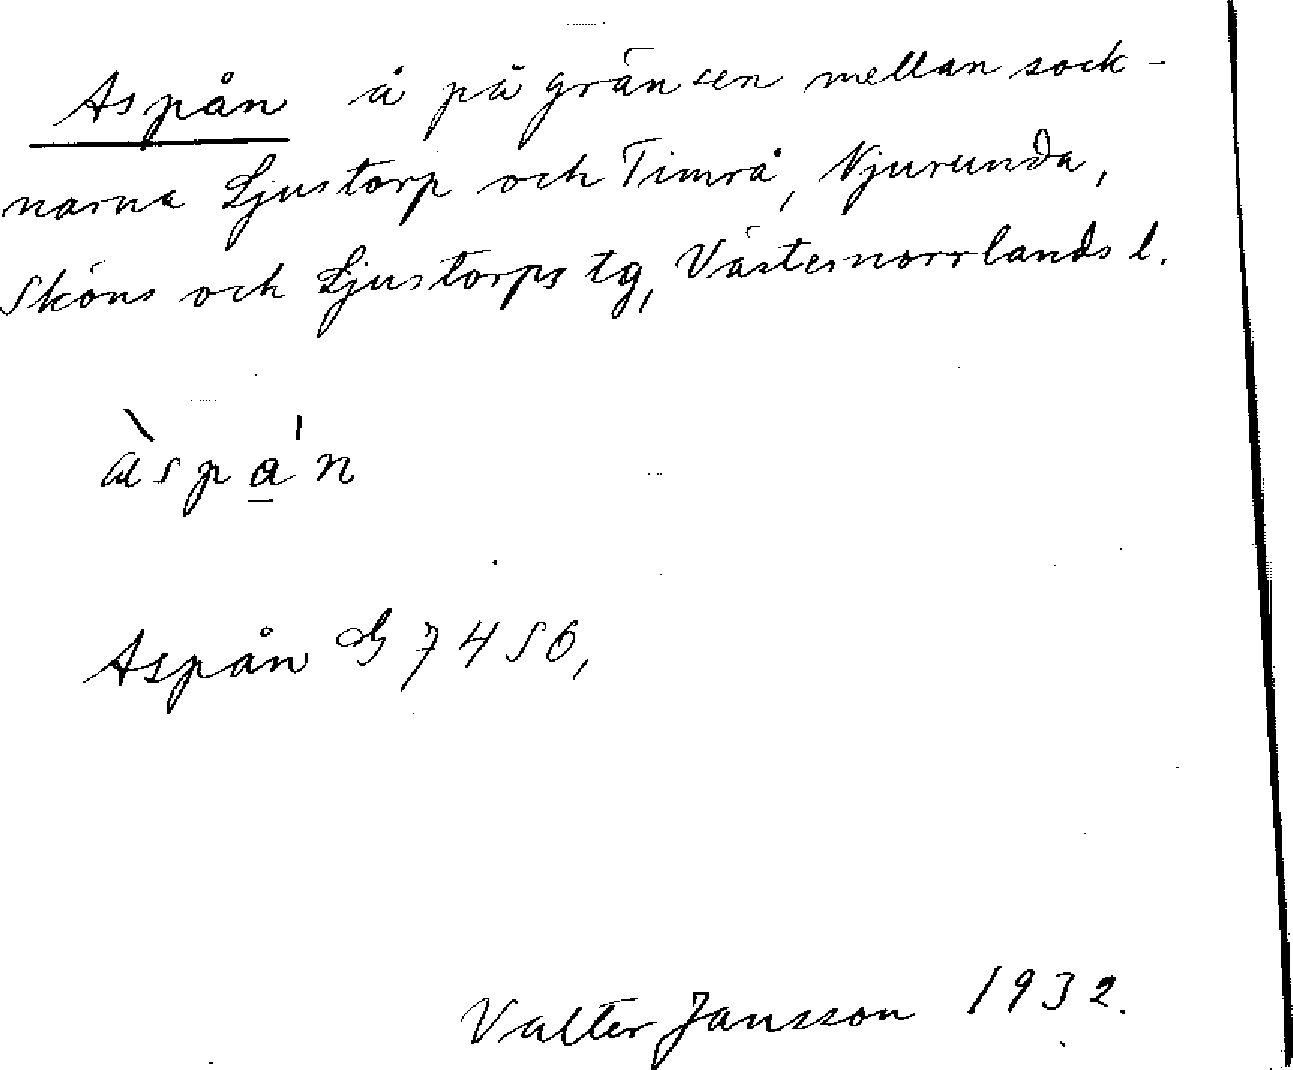 Aspån å på gränsen mellan sock-
narna Ljustorp och Timrå, Njurunda,
Sköns och Ljustorps tg, Västernorrlands l.
àspa̲'n
Aspån G 7450,
Valter Jansson 1932.